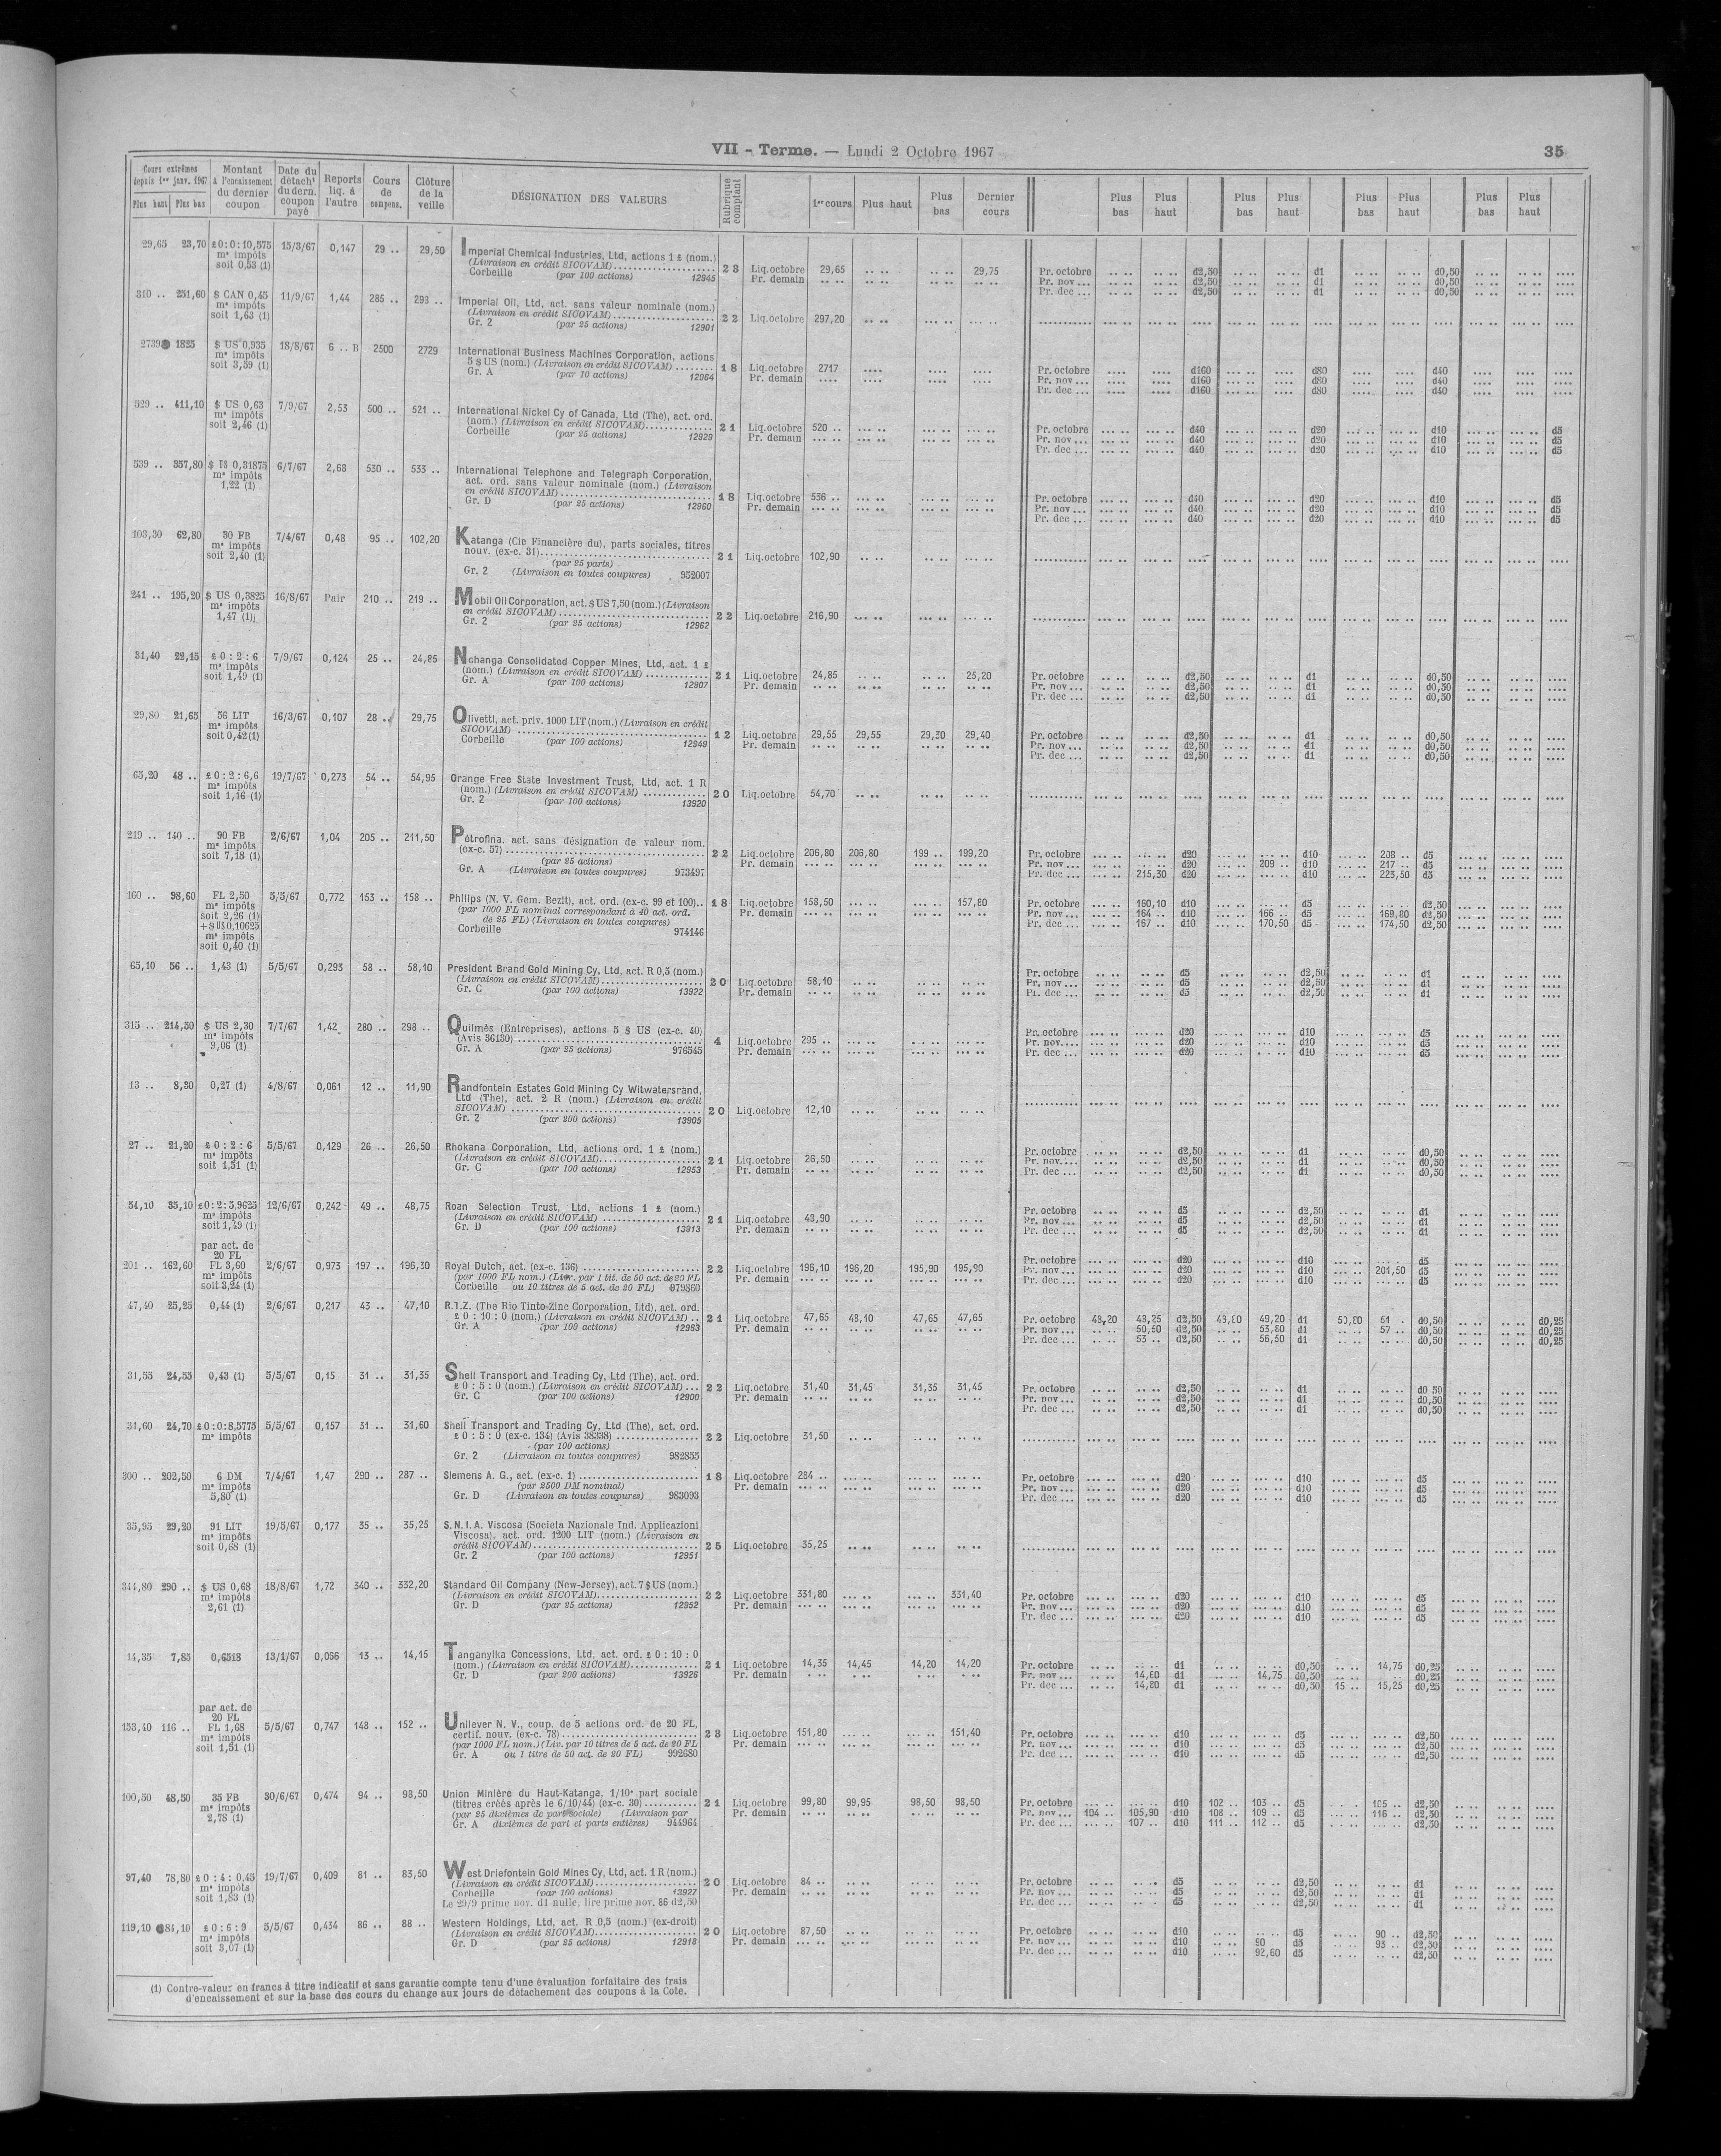 VII - Terme. — Lundi 2 Octobre 1967
35
Cours extrêmes depuis 1er janv. 1967 Plus haut Plus bas
Montant à l'encaissement du dernier coupon
Date du détacht du dern. coupon payé
Reports liq. à l'autre
Cours de compens.
Clôture de la veille
DÉSIGNATION DES VALEURS
Rubrique comptant
1er cours Plus haut Plus bas Dernier cours
Plus bas Plus haut Plus bas Plus haut Plus bas Plus haut Plus bas Plus haut
29,65 23,70 £0:0:10,575 15/3/67 0,147 29 .. 29,50 Imperial Chemical Industries, Ltd, actions 1 £ (nom.)
ms impôts (Livraison en crédit SICOVAM) 23 Liq.octobre 29,65 .. .. .. .. 29,75 Pr. octobre d2,50 d1 d0,50
soit 0,53 (1) Corbeille (par 100 actions) 12945 Pr. demain Pr. nov ... d2,50 d1 d0,50
Pr. dec ... d2,50 d1 d0,50
310 .. 251,60 $ CAN 0,45 11/9/67 1,44 285 .. 293 .. Imperial Oil, Ltd, act. sans valeur nominale (nom.)
ms impôts (Livraison en crédit SICOVAM) 22 Liq.octobre 297,20
soit 1,63 (1) Gr. 2 (par 25 actions) 12901
2739 1825 $ US 0,935 18/8/67 6 .. B 2500 2729 International Business Machines Corporation, actions
ms impôts 5 $ US (nom.) (Livraison en crédit SICOVAM) 18 Liq.octobre 2717 Pr. octobre d160 d80 d40
soit 3,59 (1) Gr. A (par 10 actions) 12964 Pr. demain Pr. nov ... d160 d80 d40
Pr. dec ... d160 d80 d40
529 .. 411,10 $ US 0,63 7/9/67 2,53 500 .. 521 .. International Nickel Cy of Canada, Ltd (The), act. ord.
ms impôts (nom.) (Livraison en crédit SICOVAM) 21 Liq.octobre 520 .. Pr. octobre d40 d20 d10 d5
soit 2,46 (1) Corbeille (par 25 actions) 12929 Pr. demain Pr. nov ... d40 d20 d10 d5
Pr. dec ... d40 d20 d10 d5
539 .. 357,80 $ US 0,31875 6/7/67 2,68 530 .. 533 .. International Telephone and Telegraph Corporation,
ms impôts act. ord. sans valeur nominale (nom.) (Livraison
1,22 (1) en crédit SICOVAM) 18 Liq.octobre 536 .. Pr. octobre d40 d20 d10 d5
Gr. D (par 25 actions) 12960 Pr. demain Pr. nov ... d40 d20 d10 d5
Pr. dec ... d40 d20 d10 d5
103,30 62,80 30 FB 7/4/67 0,48 95 .. 102,20 Katanga (Cie Financière du), parts sociales, titres
ms impôts nouv. (ex-c. 31) 21 Liq.octobre 102,90
soit 2,40 (1) (par 25 parts)
Gr. 2 (Livraison en toutes coupures) 952007
241 .. 195,20 $ US 0,3825 16/8/67 Pair 210 .. 219 .. Mobil Oil Corporation, act. $ US 7,50 (nom.) (Livraison
ms impôts en crédit SICOVAM) 22 Liq.octobre 216,90
1,47 (1) Gr. 2 (par 25 actions) 12962
31,40 22,15 £ 0 : 2 : 6 7/9/67 0,124 25 .. 24,85 Nchanga Consolidated Copper Mines, Ltd, act. 1 £
ms impôts (nom.) (Livraison en crédit SICOVAM) 21 Liq.octobre 24,85 25,20 Pr. octobre d2,50 d1 d0,50
soit 1,49 (1) Gr. A (par 100 actions) 12907 Pr. demain Pr. nov ... d2,50 d1 d0,50
Pr. dec ... d2,50 d1 d0,50
29,80 21,65 56 LIT 16/3/67 0,107 28 .. 29,75 Olivetti, act. priv. 1000 LIT (nom.) (Livraison en crédit
ms impôts SICOVAM) 12 Liq.octobre 29,55 29,55 29,30 29,40 Pr. octobre d2,50 d1 d0,50
soit 0,42 (1) Corbeille (par 100 actions) 12949 Pr. demain Pr. nov ... d2,50 d1 d0,50
Pr. dec ... d2,50 d1 d0,50
65,20 48 .. £ 0 : 2 : 6,6 19/7/67 0,273 54 .. 54,95 Orange Free State Investment Trust, Ltd, act. 1 R
ms impôts (nom.) (Livraison en crédit SICOVAM) 20 Liq.octobre 54,70
soit 1,16 (1) Gr. 2 (par 100 actions) 13920
219 .. 140 .. 90 FB 2/6/67 1,04 205 .. 211,50 Pétrofina, act. sans désignation de valeur nom.
ms impôts (ex-c. 57) 22 Liq.octobre 206,80 206,80 199 .. 199,20 Pr. octobre d20 d10 208 .. d5
soit 7,18 (1) (par 25 actions) Pr. demain Pr. nov ... d20 209 .. d10 217 .. d5
Gr. A (Livraison en toutes coupures) 973497 Pr. dec ... 215,30 d20 d10 223,50 d5
160 .. 98,60 FL 2,50 5/5/67 0,772 153 .. 158 .. Philips (N. V. Gem. Bezit), act. ord. (ex-c. 99 et 100) 18 Liq.octobre 158,50 157,80 Pr. octobre 160,10 d10 d5 d2,50
ms impôts (par 1000 FL nominal correspondant à 40 act. ord. Pr. demain Pr. nov ... 164 .. d10 166 .. d5 169,80 d2,50
soit 2,26 (1) de 25 FL) (Livraison en toutes coupures) Pr. dec ... 167 .. d10 170,50 d5 174,50 d2,50
+ $ US 0,10625 Corbeille 974146
ms impôts
soit 0,40 (1)
65,10 56 .. 1,43 (1) 5/5/67 0,293 58 .. 58,10 President Brand Gold Mining Cy, Ltd, act. R 0,5 (nom.)
(Livraison en crédit SICOVAM) 20 Liq.octobre 58,10 Pr. octobre d5 d2,50 d1
Gr. C (par 100 actions) 13922 Pr. demain Pr. nov ... d5 d2,50 d1
Pr. dec ... d5 d2,50 d1
315 .. 214,50 $ US 2,30 7/7/67 1,42 280 .. 298 .. Quilmès (Entreprises), actions 5 $ US (ex-c. 40)
ms impôts (Avis 36130) 4 Liq.octobre 295 .. Pr. octobre d20 d10 d5
9,06 (1) Gr. A (par 25 actions) 976545 Pr. demain Pr. nov ... d20 d10 d5
Pr. dec ... d20 d10 d5
13 .. 8,30 0,27 (1) 4/8/67 0,061 12 .. 11,90 Randfontein Estates Gold Mining Cy Witwatersrand,
Ltd (The), act. 2 R (nom.) (Livraison en crédit
SICOVAM) 20 Liq.octobre 12,10
Gr. 2 (par 200 actions) 13905
27 .. 21,20 £ 0 : 2 : 6 5/5/67 0,129 26 .. 26,50 Rhokana Corporation, Ltd, actions ord. 1 £ (nom.)
ms impôts (Livraison en crédit SICOVAM) 21 Liq.octobre 26,50 Pr. octobre d2,50 d1 d0,50
soit 1,51 (1) Gr. C (par 100 actions) 12953 Pr. demain Pr. nov ... d2,50 d1 d0,50
Pr. dec ... d2,50 d1 d0,50
54,10 35,10 £0:2:5,9625 12/6/67 0,242 49 .. 48,75 Roan Selection Trust, Ltd, actions 1 £ (nom.)
ms impôts (Livraison en crédit SICOVAM) 21 Liq.octobre 48,90 Pr. octobre d5 d2,50 d1
soit 1,49 (1) Gr. D (par 100 actions) 13913 Pr. demain Pr. nov ... d5 d2,50 d1
Pr. dec ... d5 d2,50 d1
par act. de
20 FL
201 .. 162,60 FL 3,60 2/6/67 0,973 197 .. 196,30 Royal Dutch, act. (ex-c. 136) 22 Liq.octobre 196,10 196,20 195,90 195,90 Pr. octobre d20 d10 d5
ms impôts (par 1000 FL nom.) (Liv. par 1 tit. de 50 act. de 20 FL Pr. demain Pr. nov ... d20 d10 201,50 d5
soit 3,24 (1) Corbeille ou 10 titres de 5 act. de 20 FL) 979860 Pr. dec ... d20 d10 d5
47,40 25,25 0,44 (1) 2/6/67 0,217 43 .. 47,10 R.T.Z. (The Rio Tinto-Zinc Corporation, Ltd), act. ord.
£ 0 : 10 : 0 (nom.) (Livraison en crédit SICOVAM) .. 21 Liq.octobre 47,65 48,10 47,65 47,65 Pr. octobre 48,20 48,25 d2,50 49,20 d1 50,80 51 . d0,50 d0,25
Gr. A (par 100 actions) 12993 Pr. demain Pr. nov ... 50,50 d2,50 53,80 d1 57 .. d0,50 d0,25
Pr. dec ... 53 .. d2,50 56,50 d1 d0,50 d0,25
31,55 24,55 0,43 (1) 5/5/67 0,15 31 .. 31,35 Shell Transport and Trading Cy, Ltd (The), act. ord.
£ 0 : 5 : 0 (nom.) (Livraison en crédit SICOVAM) ... 22 Liq.octobre 31,40 31,45 31,35 31,45 Pr. octobre d2,50 d1 d0 50
Gr. C (par 100 actions) 12900 Pr. demain Pr. nov ... d2,50 d1 d0,50
Pr. dec ... d2,50 d1 d0,50
31,60 24,70 £0:0:8,5775 5/5/67 0,157 31 .. 31,60 Shell Transport and Trading Cy, Ltd (The), act. ord.
ms impôts £ 0 : 5 : 0 (ex-c. 134) (Avis 38338) 22 Liq.octobre 31,50
(par 100 actions)
Gr. 2 (Livraison en toutes coupures) 982855
300 .. 202,50 6 DM 7/4/67 1,47 290 .. 287 .. Siemens A. G., act. (ex-c. 1) 18 Liq.octobre 284 .. Pr. octobre d20 d10 d5
ms impôts (par 2500 DM nominal) Pr. demain Pr. nov ... d20 d10 d5
5,80 (1) Gr. D (Livraison en toutes coupures) 983093 Pr. dec ... d20 d10 d5
35,95 29,20 91 LIT 19/5/67 0,177 35 .. 35,25 S.N.I.A. Viscosa (Societa Nazionale Ind. Applicazioni
ms impôts Viscosa), act. ord. 1200 LIT (nom.) (Livraison en
soit 0,68 (1) crédit SICOVAM) 25 Liq.octobre 35,25
Gr. 2 (par 100 actions) 12951
344,80 290 .. $ US 0,68 18/8/67 1,72 340 .. 332,20 Standard Oil Company (New-Jersey), act. 7 $ US (nom.)
ms impôts (Livraison en crédit SICOVAM) 22 Liq.octobre 331,80 331,40 Pr. octobre d20 d10 d5
2,61 (1) Gr. D (par 25 actions) 12952 Pr. demain Pr. nov ... d20 d10 d5
Pr. dec ... d20 d10 d5
14,35 7,85 0,6518 13/1/67 0,066 13 .. 14,15 Tanganyika Concessions, Ltd, act. ord. £ 0 : 10 : 0
(nom.) (Livraison en crédit SICOVAM) 21 Liq.octobre 14,35 14,45 14,20 14,20 Pr. octobre d1 d0,50 14,75 d0,25
Gr. D (par 200 actions) 13926 Pr. demain Pr. nov ... 14,60 d1 14,75 d0,50 d0,25
Pr. dec ... 14,80 d1 d0,50 15 .. 15,25 d0,25
par act. de
20 FL
153,40 116 .. FL 1,68 5/5/67 0,747 148 .. 152 .. Unilever N. V., coup. de 5 actions ord. de 20 FL,
ms impôts certif. nouv. (ex-c. 78) 23 Liq.octobre 151,80 151,40 Pr. octobre d10 d5 d2,50
soit 1,51 (1) (par 1000 FL nom.) (Liv. par 10 titres de 5 act. de 20 FL Pr. demain Pr. nov ... d10 d5 d2,50
Gr. A ou 1 titre de 50 act. de 20 FL) 992680 Pr. dec ... d10 d5 d2,50
100,50 48,50 35 FB 30/6/67 0,474 94 .. 98,50 Union Minière du Haut-Katanga, 1/10e part sociale
ms impôts (titres créés après le 6/10/44) (ex-c. 30) 21 Liq.octobre 99,80 99,95 98,50 98,50 Pr. octobre d10 102 .. 103 .. d5 105 .. d2,50
2,78 (1) (par 25 dixièmes de part sociale) (Livraison par Pr. demain Pr. nov ... 104 .. 105,90 d10 108 .. 109 .. d5 116 .. d2,50
Gr. A dixièmes de part et parts entières) 944964 Pr. dec ... 107 .. d10 111 .. 112 .. d5 d2,50
97,40 78,80 £ 0 : 4 : 0,45 19/7/67 0,409 81 .. 83,50 West Driefontein Gold Mines Cy, Ltd, act. 1 R (nom.)
ms impôts (Livraison en crédit SICOVAM) 20 Liq.octobre 84 .. Pr. octobre d5 d2,50 d1
soit 1,83 (1) Corbeille (par 100 actions) 13927 Pr. demain Pr. nov ... d5 d2,50 d1
Le 29/9 prime nov. d1 nulle, lire prime nov. 86 d2,50 Pr. dec ... d5 d2,50 d1
119,10 81,10 £ 0 : 6 : 9 5/5/67 0,434 86 .. 88 .. Western Holdings, Ltd, act. R 0,5 (nom.) (ex-droit)
ms impôts (Livraison en crédit SICOVAM) 20 Liq.octobre 87,50 Pr. octobre d10 d5 90 .. d2,50
soit 3,07 (1) Gr. D (par 25 actions) 12918 Pr. demain Pr. nov ... d10 90 d5 95 .. d2,50
Pr. dec ... d10 92,60 d5 d2,50
(1) Contre-valeur en francs à titre indicatif et sans garantie compte tenu d'une évaluation forfaitaire des frais
d'encaissement et sur la base des cours du change aux jours de détachement des coupons à la Cote.